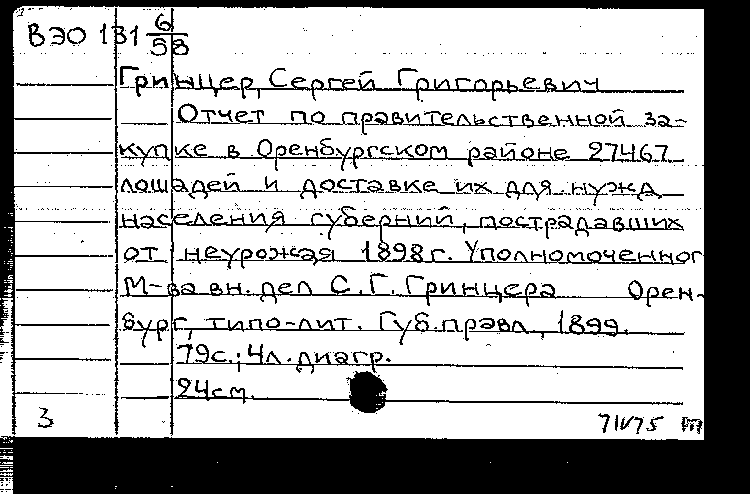 ВЭО 131 6/58
Гринцер, Сергей Григорьевич
Отчет по правительственной за-
купке в Оренбургском районе 27467
лошадей и доставке их для нужд
населения губерний, пострадавших
от неурожая 1898 г. Уполномоченног
М-ва вн. дел С. Г. Гринцера Орен-
бург, типо-лит. Губ. правл., 1899.
79 с.; 4 л. диагр.
24 см.
3